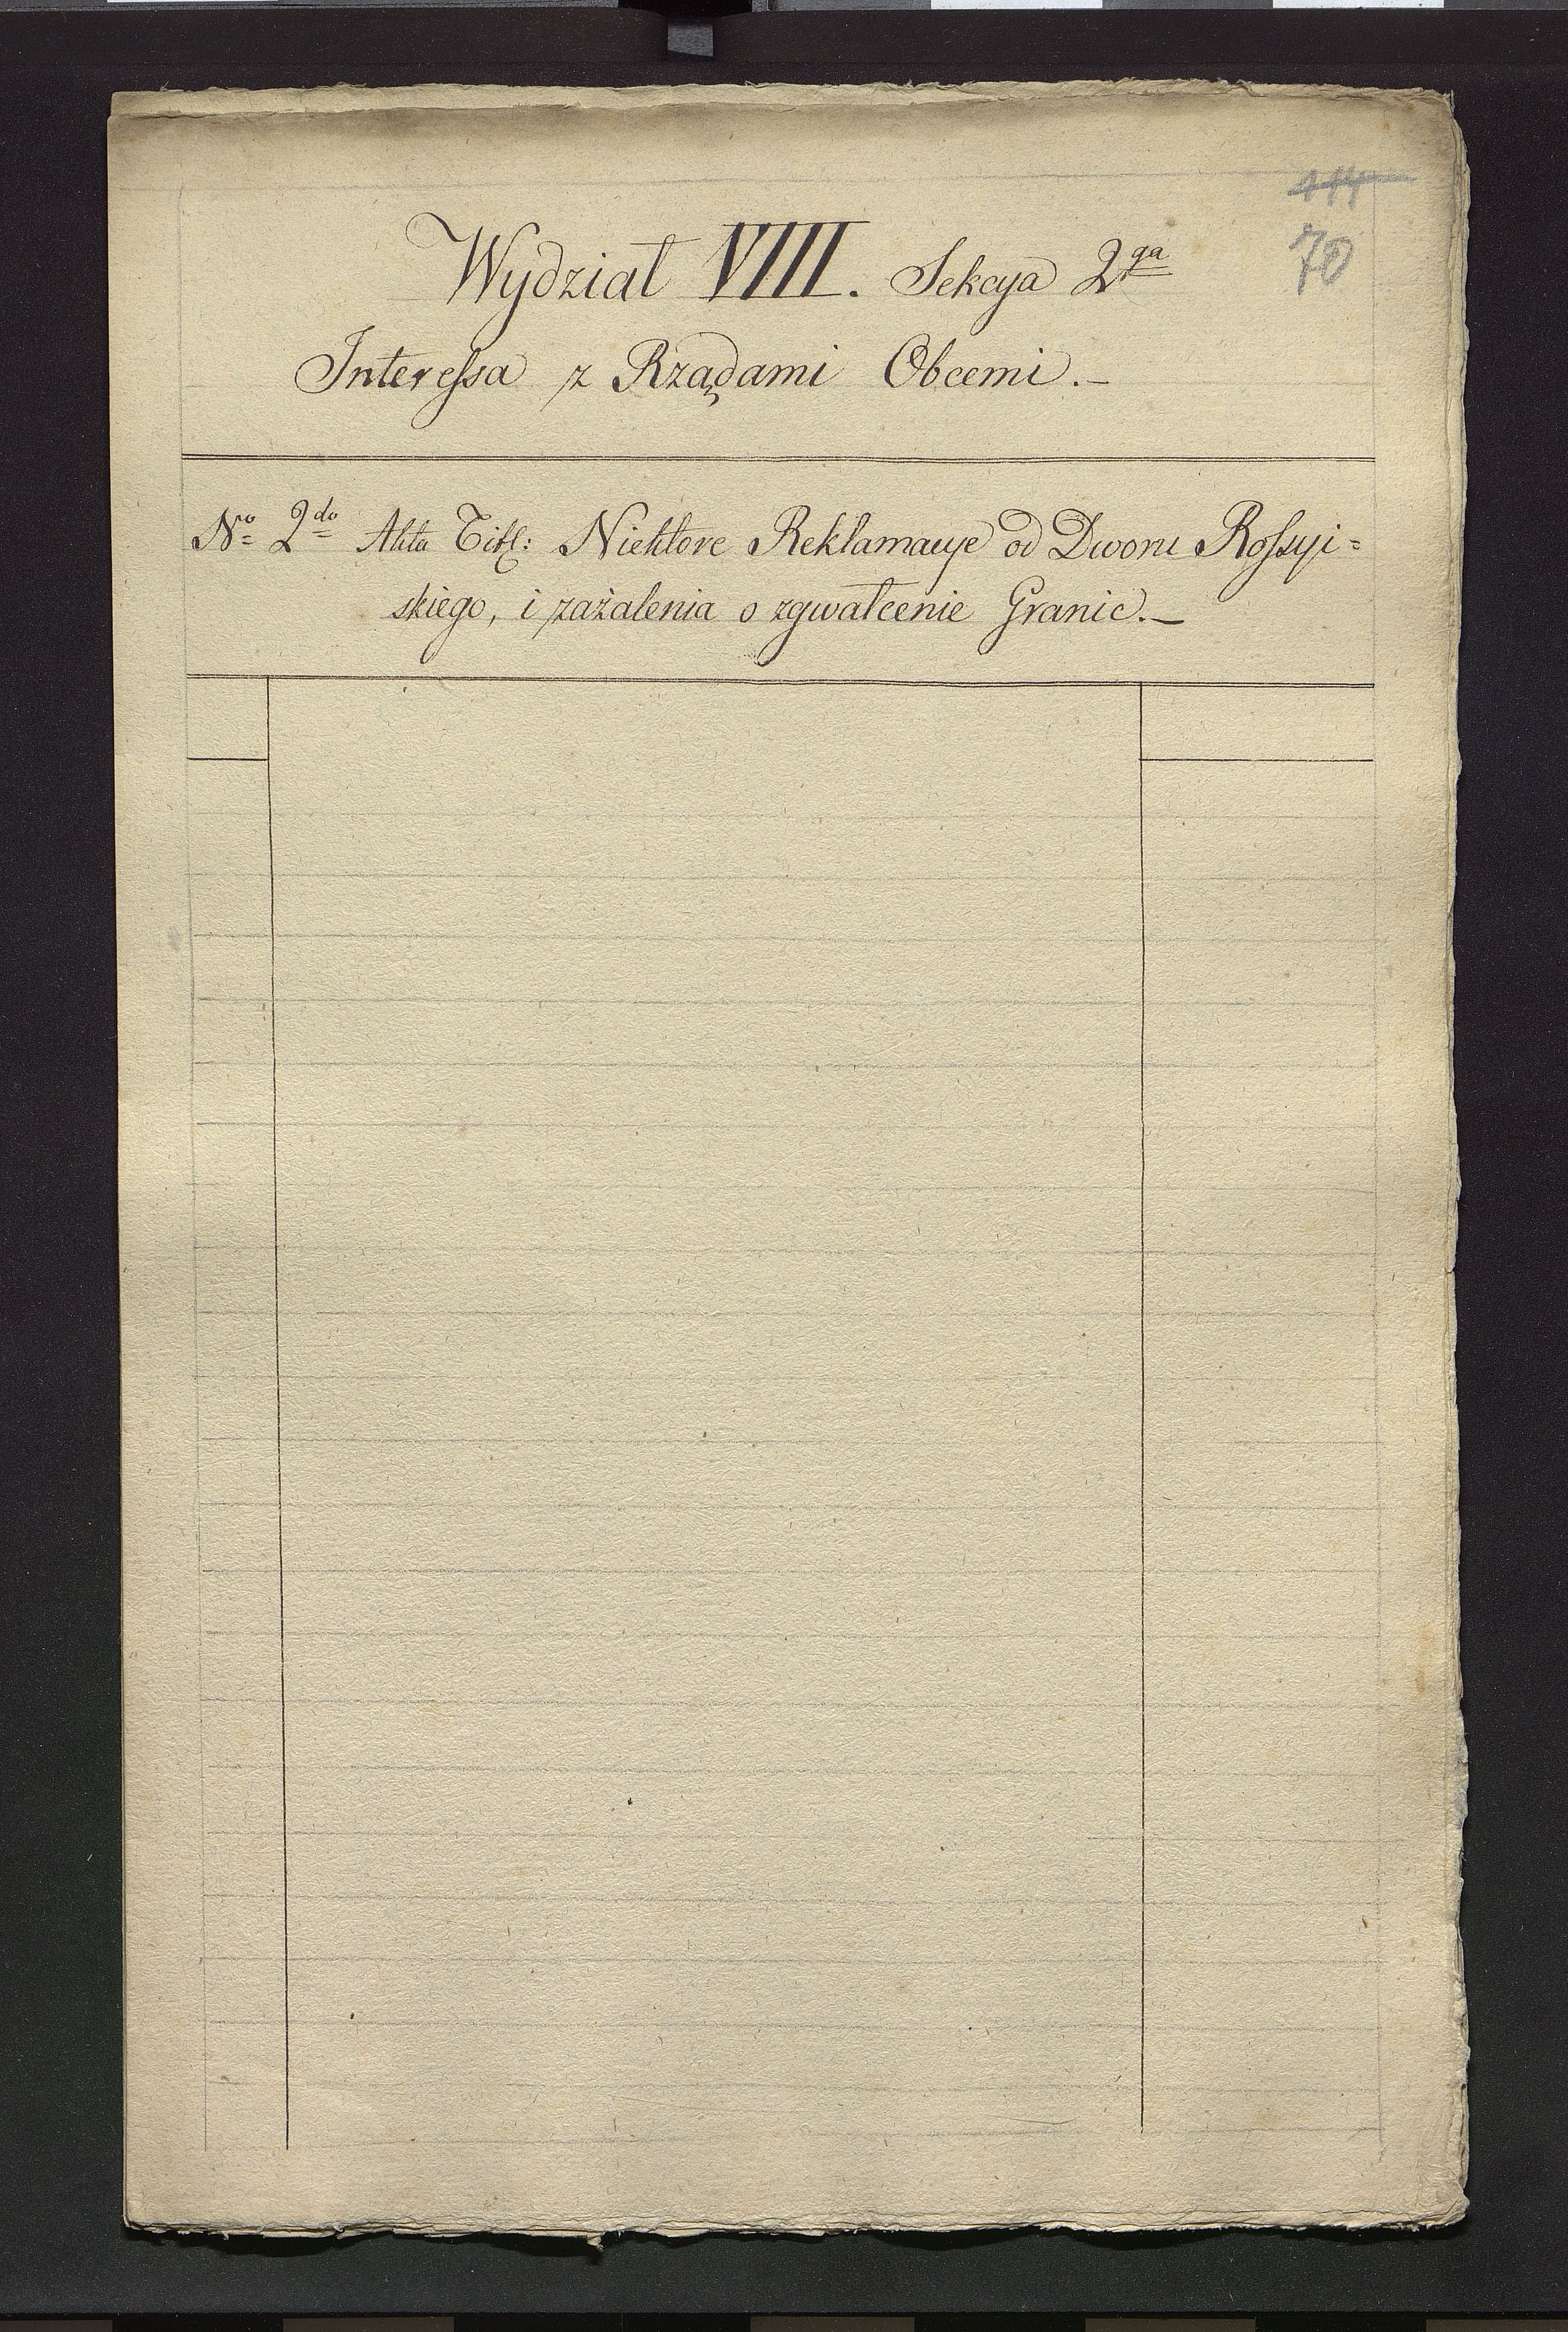 70
Wydział VIII. Sekcya 2ga
Interessa z Rządami Obcemi.–
No 2do Akta Titl: Niektore Reklamacye od Dworu Rossyi=
skiego, i zażalenia o zgwałcenie Granic.–